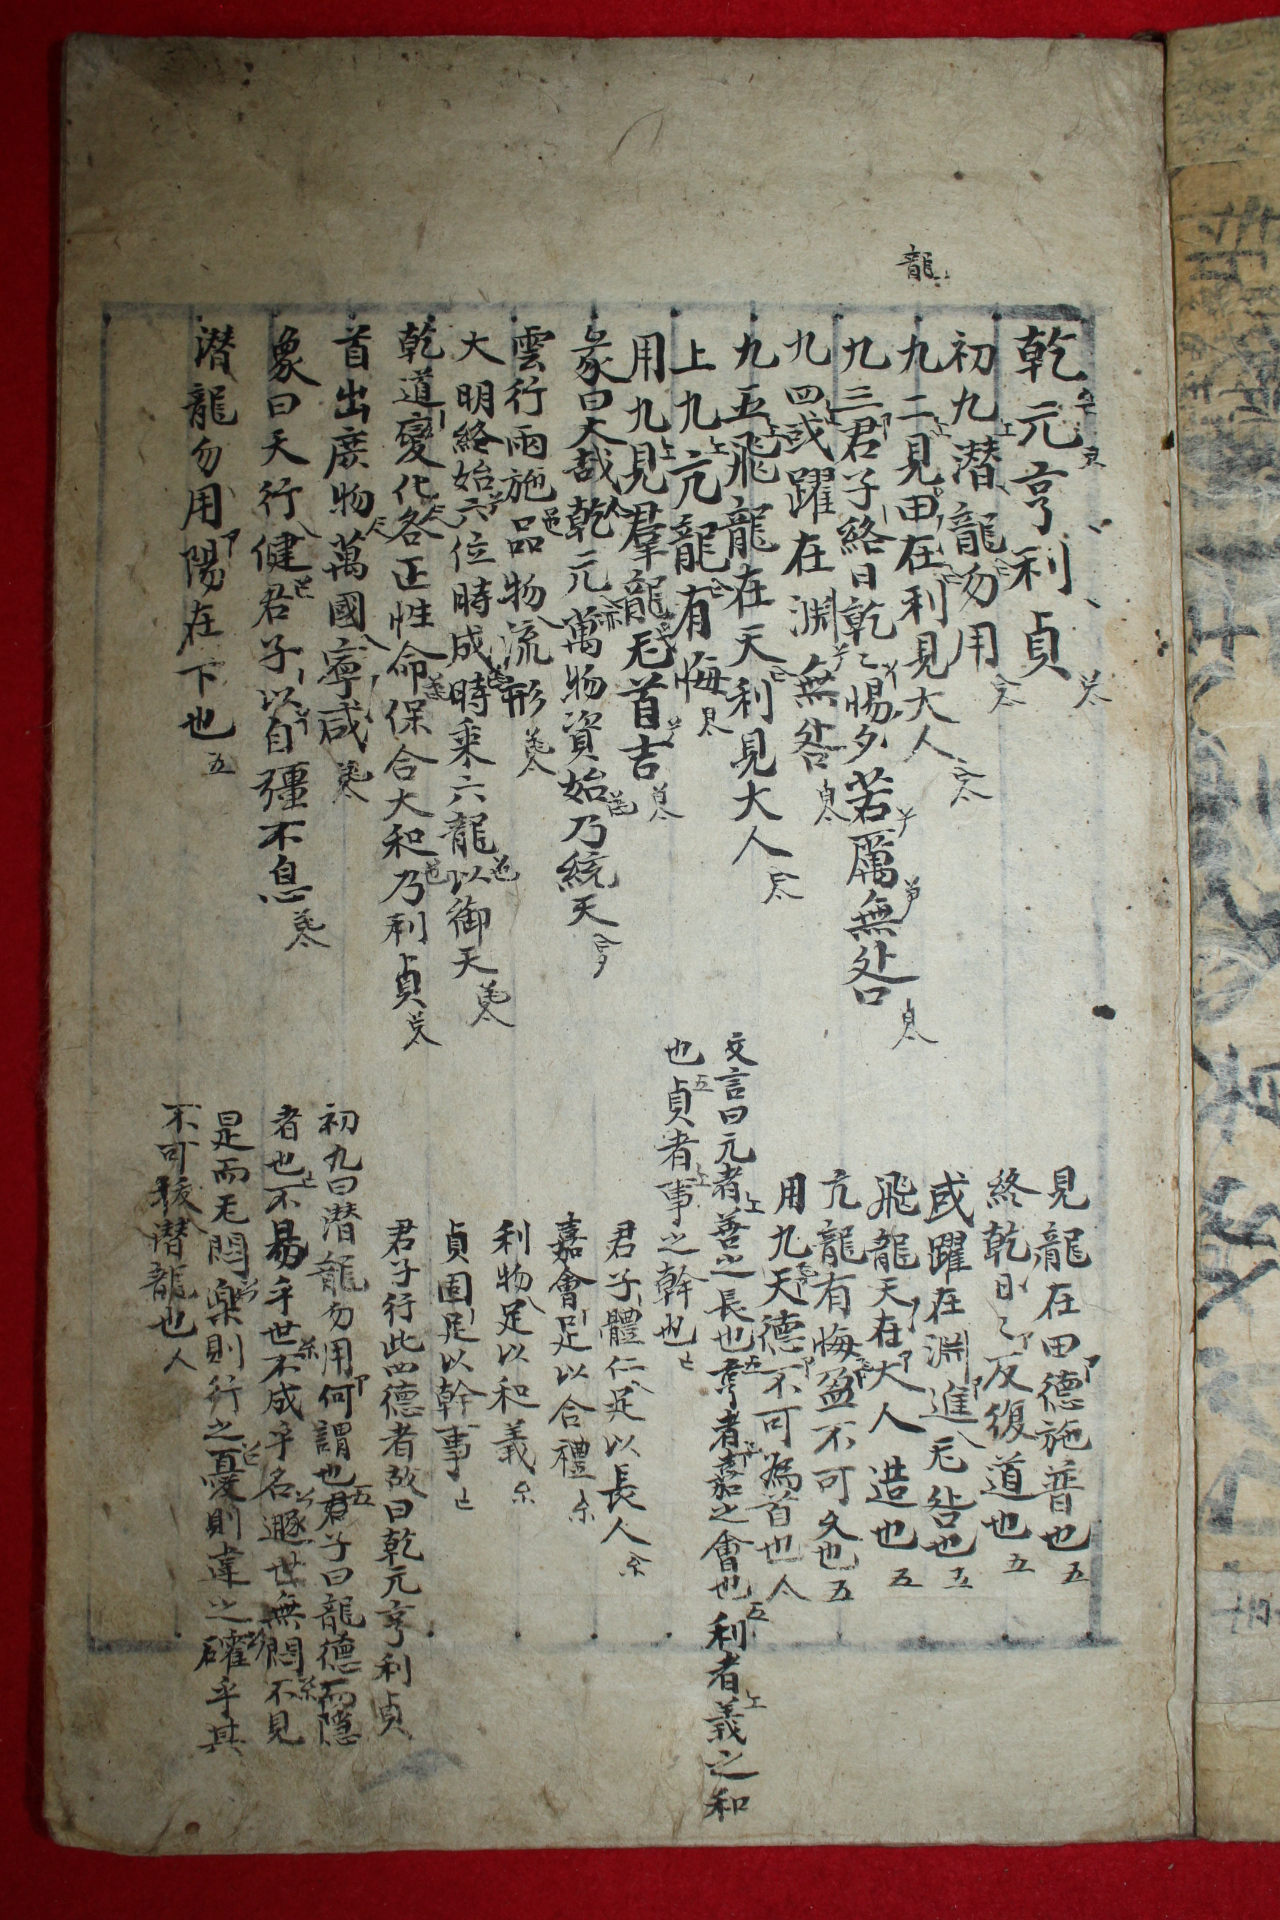 龍
乾元亨利貞
初九潛龍勿用
九二見田在利見大人
九三君子終日乾〻惕夕若厲無咎
九四或躍在淵無咎
九五飛龍在天利見大人
上九亢龍有悔
用九見羣龍无首吉
彖曰大哉乾元萬物資始乃統天
雲行雨施品物流形
大明終始六位時成時乘六龍以御天
乾道變化各正性命保合大和乃利貞
首出庶物萬國寧咸
象曰天行健君子以自彊不息
潛龍勿用陽在下也
見龍在田德施普也
終乾日〻反復道也
或躍在淵進无咎也
飛龍天在大人造也
亢龍有悔盈不可久也
用九天德不可為首也
文言曰元者善之長也亨者嘉之會也利者義之和
也貞者事之幹也
君子體仁足以長人
嘉會足以合禮
利物足以和義
貞固足以幹事
君子行此四德者故曰乾元亨利貞
初九曰潛龍勿用何謂也君子曰龍德而隱
者也不易乎世不成乎名遯世無悶不見
是而无悶樂則行之憂則違之確乎其
不可拔潛龍也